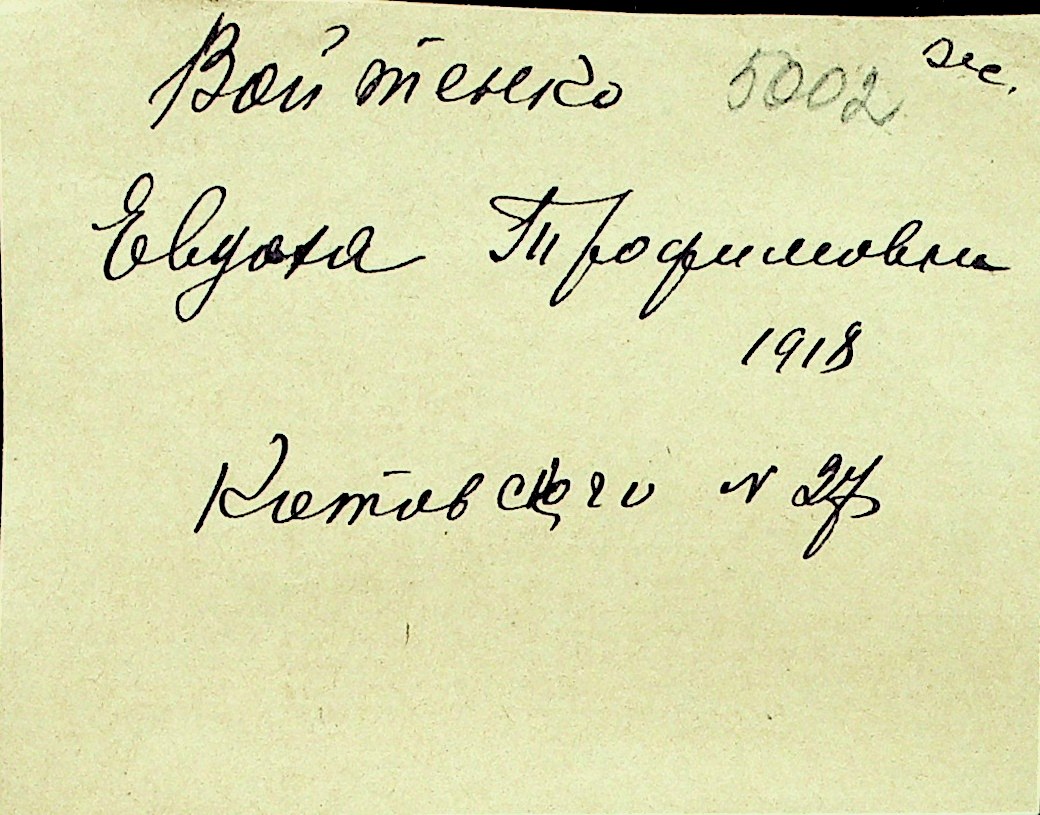 Войтенко 5002 эс.
Евдоха Трофимовна
1918
Котовского N 27